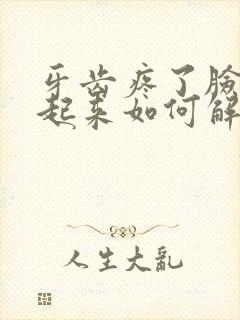 牙齿疼了臉
起来如何解
人生大亂